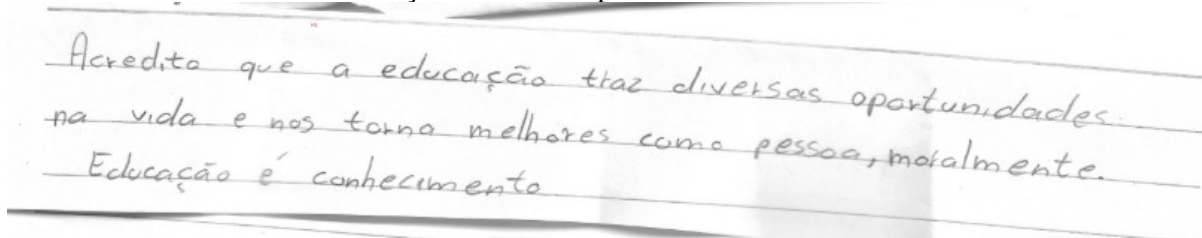 Acredito que a educação traz diversas oportunidades
na vida e nos torna melhores como pessoa, moralmente.
Educação é conhecimento